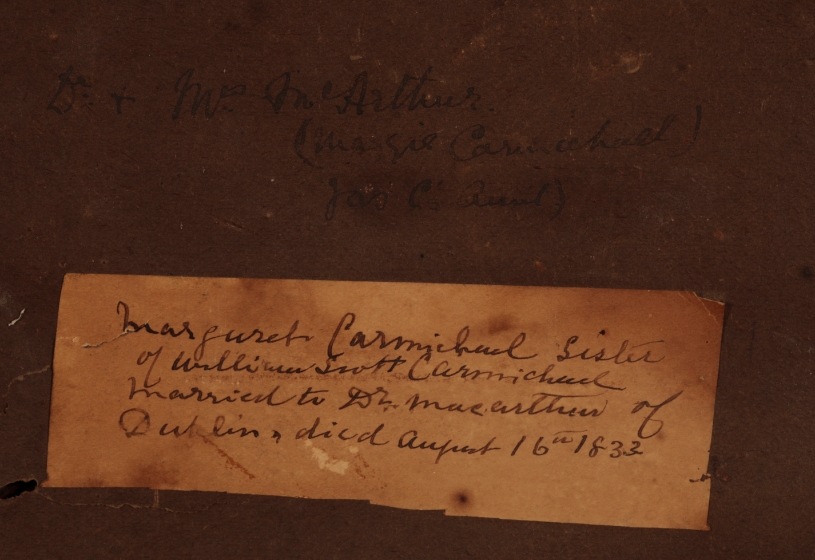 Dr + Mrs McArthur
(Margie Carmichael)
Jas C. Aunt)
Margaret Carmichael Sister
of William Scott Carmichael
married to Dr. Macarthur of
Dublin, died August 16th 1833